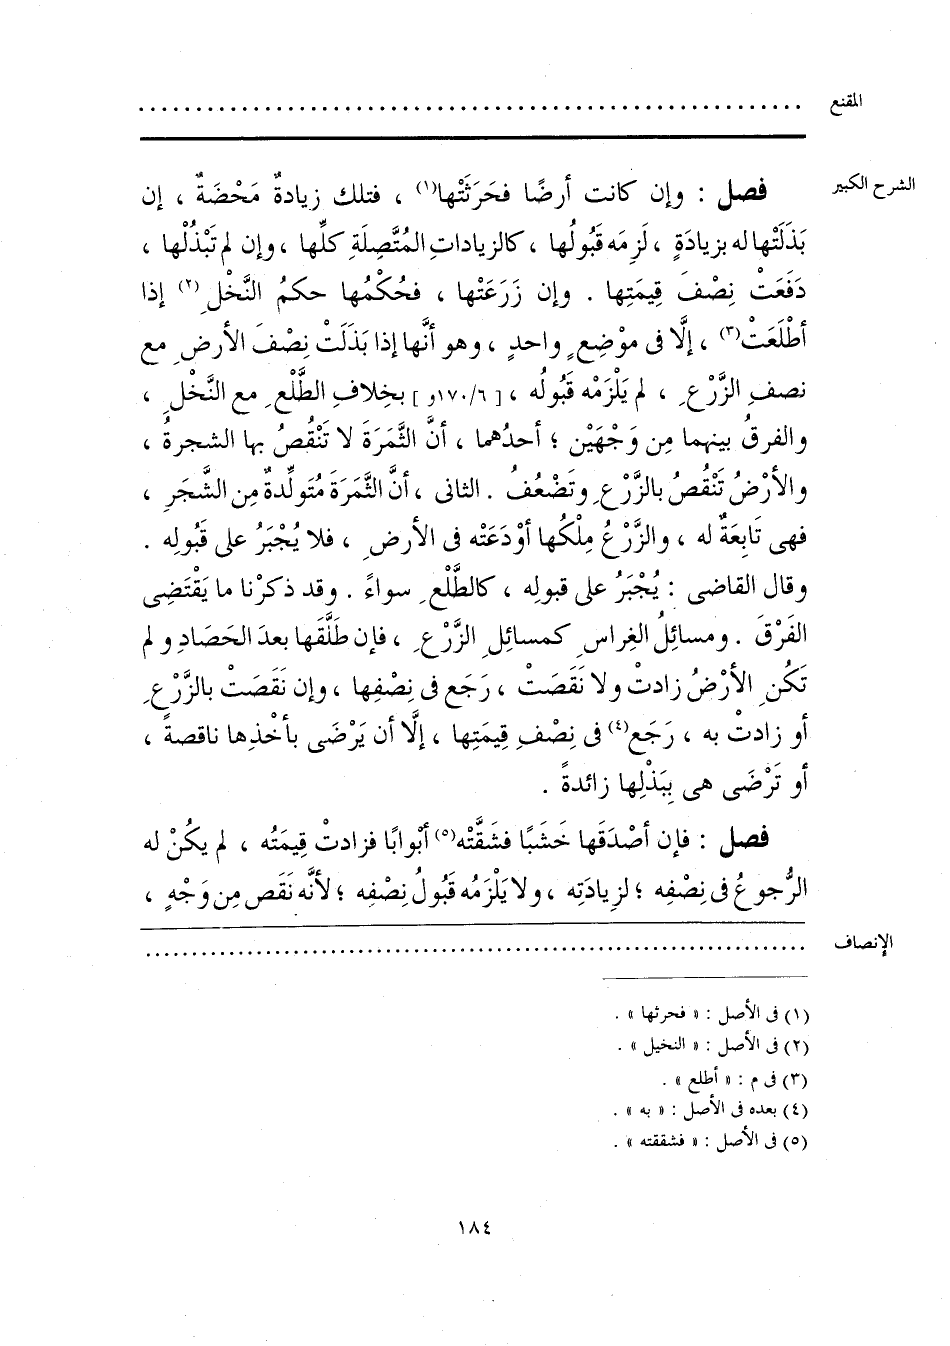 المقنع ........................................................
الشرح الكبير
فصل : وإن كانت أرضًا فحَرَثَتْها(١) ، فتلك زيادةٌ مَحْضَةٌ ، إن
بَذَلَتْها له بزيادَةٍ ، لَزِمَه قَبُولُها ، كالزياداتِ المُتَّصِلَةِ كلِّها ، وإن لم تَبْذُلْها ،
دَفَعَتْ نِصْفَ قِيمَتِها . وإن زَرَعَتْها ، فحُكْمُها حكمُ النَّخْلِ(٢) إذا
أطْلَعَتْ(٣) ، إلَّا فى موْضِعٍ واحدٍ ، وهو أنَّها إذا بَذَلَتْ نِصْفَ الأرضِ مع
نصفِ الزَّرْعِ ، لم يَلْزَمْه قَبُولُه ، [ ١٧٠/٦و ] بخِلافِ الطَّلْعِ مع النَّخْلِ ،
والفرقُ بينهما مِن وَجْهَيْن ؛ أحدُهما ، أنَّ الثَّمَرَةَ لا تَنْقُصُ بها الشجرةُ ،
والأرْضُ تَنْقُصُ بالزَّرْعِ وتَضْعُفُ . الثانى ، أنَّ الثَّمَرَةَ مُتَولِّدةٌ مِن الشَّجَرِ ،
فهى تَابِعَةٌ له ، والزَّرْعُ مِلْكُها أوْدَعَتْه فى الأرضِ ، فلا يُجْبَرُ على قَبُولِه .
وقال القاضى : يُجْبَرُ على قبولِه ، كالطَّلْعِ سواءً . وقد ذكرْنا ما يَقْتَضِى
الفَرْقَ . ومسائلُ الغِراسِ كمسائلِ الزَّرْعِ ، فإن طَلَّقَها بعدَ الحَصادِ ولم
تَكُنِ الأرْضُ زادتْ ولا نَقَصَتْ ، رَجَع فى نِصْفِها ، وإن نَقَصَتْ بالزَّرْعِ
أو زادتْ به ، رَجَع(٤) فى نِصْفِ قِيمَتِها ، إلَّا أن يَرْضَى بأخْذِها ناقصةً ،
أو تَرْضَى هى بِبَذْلِها زائدةً .
فصل : فإن أصْدَقَها خَشَبًا فشَقَّتْه(٥) أبْوابًا فزادتْ قِيمَتُه ، لم يكُنْ له
الرُّجوعُ فى نِصْفِه ؛ لزِيادَتِه ، ولا يَلْزَمُه قَبُولُ نِصْفِه ؛ لأنَّه نَقَص مِن وَجْهٍ ،
الإنصاف ........................................................
(١) فى الأصل : « فحرثها » .
(٢) فى الأصل : « النخيل » .
(٣) فى م : « أطلع » .
(٤) بعده فى الأصل : « به » .
(٥) فى الأصل : « فشققته » .
١٨٤